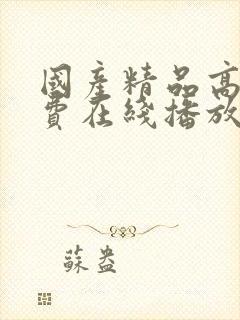 國產精品高
費在綫播放
蘇盎